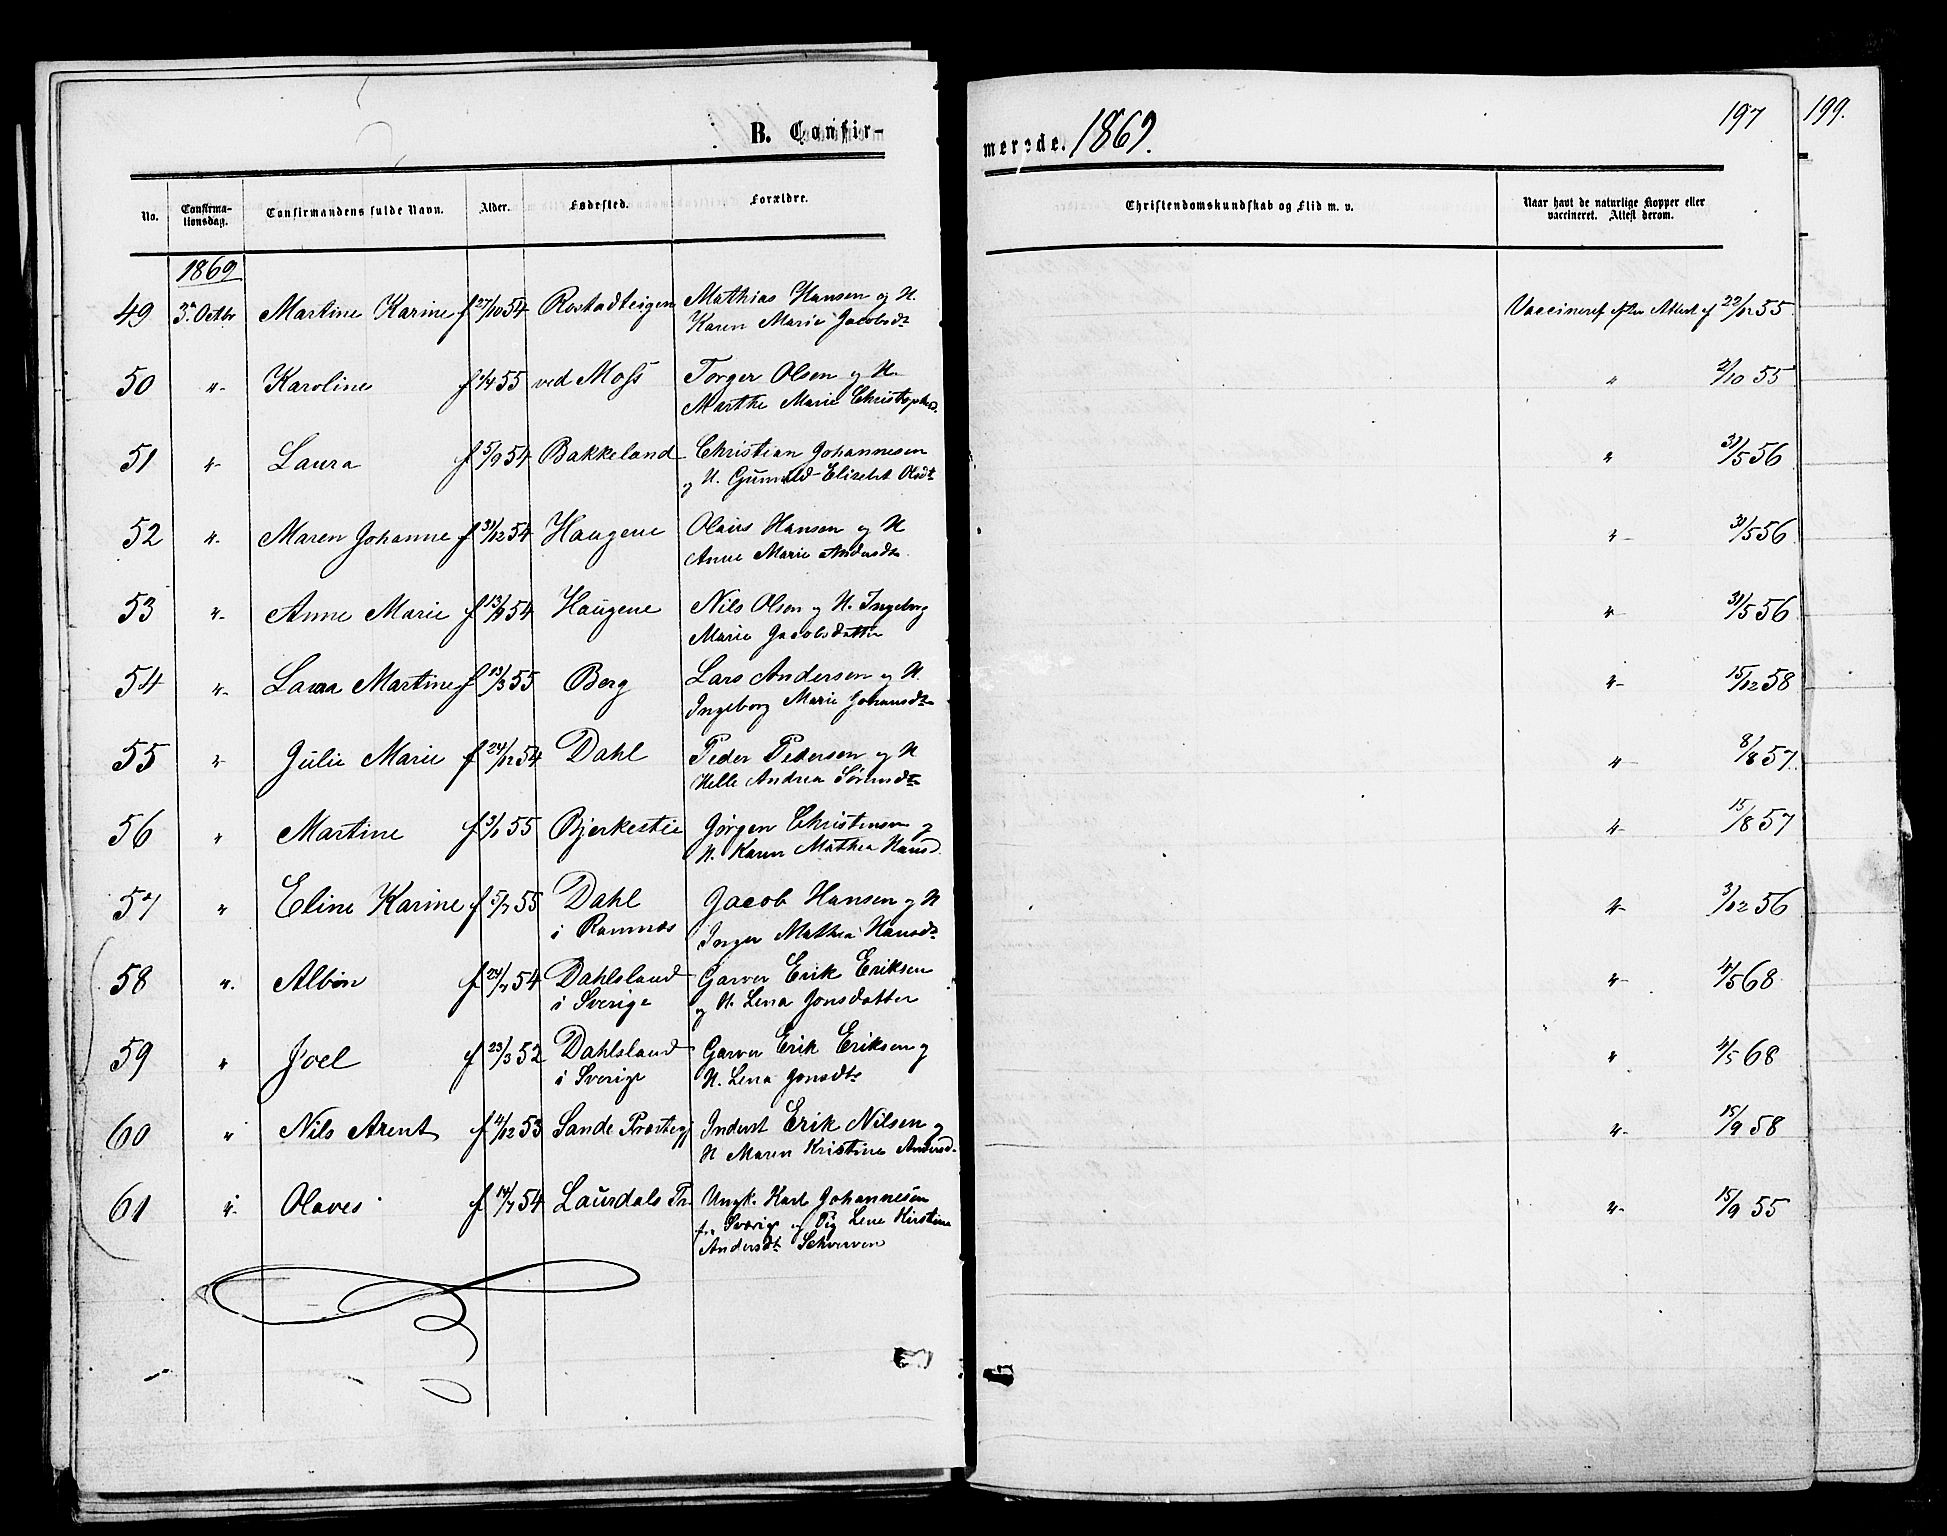 B. Confir-
merede. 1869.
197
199.
No.
Confirma-
tionsdag.
Confirmandens fulde Navn.
Alder.
Fødested.
Forældre.
Christendomskundskab og Flid m. v.
Naar havt de naturlige Kopper eller
vaccineret. Attest derom.
1869
49 3die Octbr Martine Karine f 27/10 54 Rostadteigen Mathias Hansen og H. Vaccineret efter Attest af 22/12 55
Karen Marie Jacobsdt
50 " Karoline f 1/4 55 ved Moss Torger Olsen og H. " 2/10 55
Marthe Marie Christophsd.
51 " Laura f 5/9 54 Bakkeland Christian Johannesen " 31/5 56
og H. Gunnild Elisebet Olsdt
52 " Maren Johanne f 31/12 54 Haugene Olaus Hansen og H " 31/5 56
Anne Marie Andersdt
53 " Anne Marie f 13/9 54 Haugene Nils Olsen og H. Ingeborg " 31/5 56
Marie Jacobsdatter
54 " Laura Martine f 13/3 55 Berg Lars Andersen og H. " 15/12 58
Ingeborg Marie Johansdt
55 " Julie Marie f 24/12 54 Dahl Peder Pedersen og H " 8/8 57.
Helle Andrea Sørensdt
56 " Martine f 3/1 55 Bjerkestie Jørgen Christensen og " 15/8 57
H. Karen Mathea Hansd.
57 " Eline Karine f 5/7 55 Dahl Jacob Hansen og H " 3/12 56
i Ramnæs Inger Mathea Hansdt
58 " Albin f 24/7 54 Dahlsland Garver Erik Eriksen " 4/5 68
i Sverige og H. Lena Jonsdatter
59 " Joel f 23/3 52 Dahlsland Garver Erik Eriksen og " 4/5 68
i Sverige H. Lena Jonsdtr
60 " Nils Arent f 4/12 53 Sande Præstegj Inderst Erik Nilsen og " 15/9 58
H Maren Kristine Andersd.
61 " Olaves f 14/7 54 Laurdals Pr. Ungk. Karl Johannesen " 15/9 55
fra Sverige og Pig Lene Kirstine
Andersdt Schverven